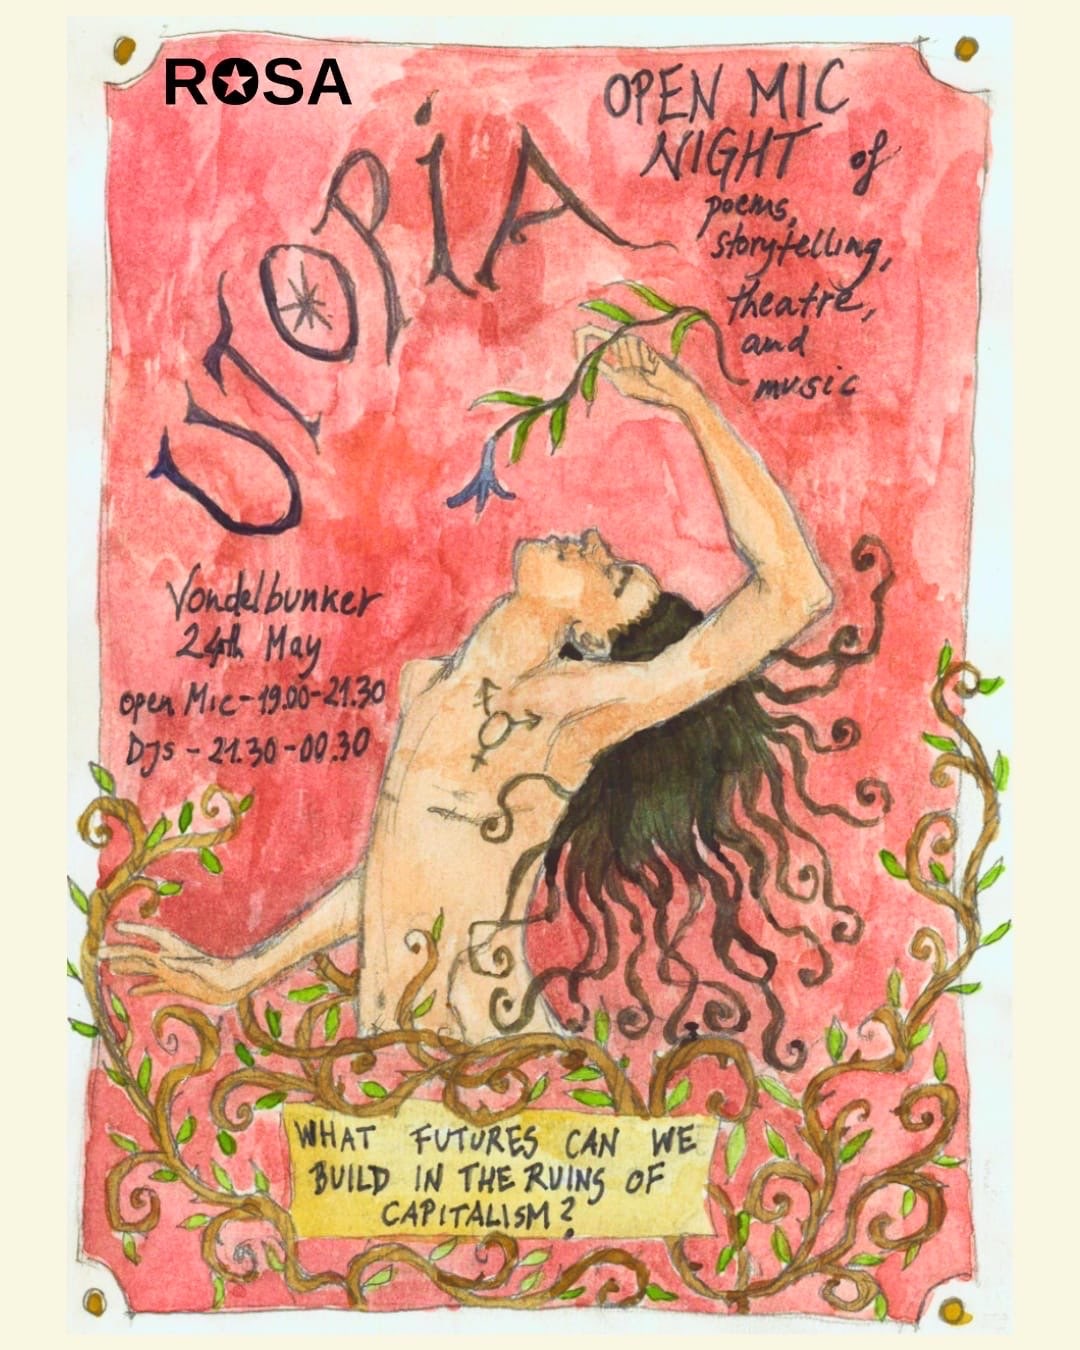 ROSA
UTOPIA
OPEN MIC
NIGHT of
poems,
storytelling,
theatre,
and
music
Vondelbunker
24th May
open Mic - 19.00-21.30
DJs - 21.30-00.30
WHAT FUTURES CAN WE
BUILD IN THE RUINS OF
CAPITALISM?